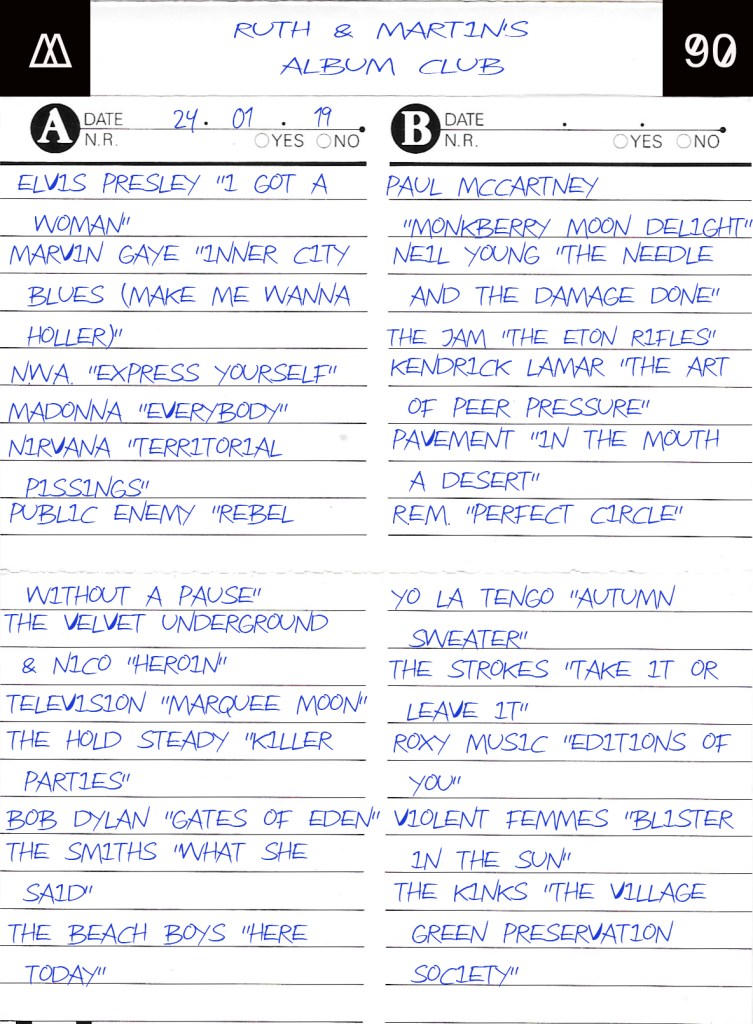 RUTH & MARTIN'S
ALBUM CLUB
90
A DATE 24. 01. 19
N.R. YES NO
ELVIS PRESLEY "I GOT A
WOMAN"
MARVIN GAYE "INNER CITY
BLUES (MAKE ME WANNA
HOLLER)"
N.W.A. "EXPRESS YOURSELF"
MADONNA "EVERYBODY"
NIRVANA "TERRITORIAL
PISSINGS"
PUBLIC ENEMY "REBEL
WITHOUT A PAUSE"
THE VELVET UNDERGROUND
& NICO "HEROIN"
TELEVISION "MARQUEE MOON"
THE HOLD STEADY "KILLER
PARTIES"
BOB DYLAN "GATES OF EDEN"
THE SMITHS "WHAT SHE
SAID"
THE BEACH BOYS "HERE
TODAY"
B DATE . .
N.R. YES NO
PAUL MCCARTNEY
"MONKBERRY MOON DELIGHT"
NEIL YOUNG "THE NEEDLE
AND THE DAMAGE DONE"
THE JAM "THE ETON RIFLES"
KENDRICK LAMAR "THE ART
OF PEER PRESSURE"
PAVEMENT "IN THE MOUTH
A DESERT"
REM. "PERFECT CIRCLE"
YO LA TENGO "AUTUMN
SWEATER"
THE STROKES "TAKE IT OR
LEAVE IT"
ROXY MUSIC "EDITIONS OF
YOU"
VIOLENT FEMMES "BLISTER
IN THE SUN"
THE KINKS "THE VILLAGE
GREEN PRESERVATION
SOCIETY"